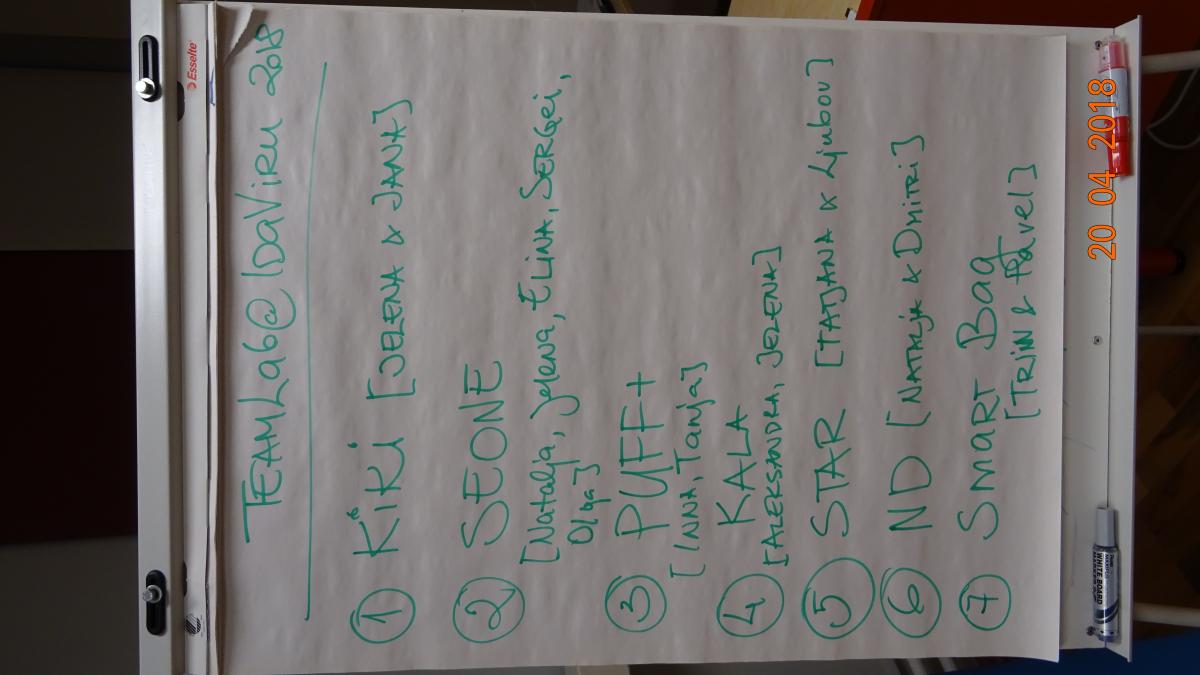 Esselte
TEAMLab@IDAVIRU 2018
1 KiKi [JELENA & JANA]
2 SEONE
[Natalja, Jelena, ELINA, SERGEi,
Olga]
3 PUFF+
[INNA, Tanja]
4 KALA
[ALEKSANDRA, JELENA]
5 STAR [TATJANA & Ljubov]
6 ND [NATALJA & DMITRI]
7 SMART BAG
[TRIIN & PAVEL]
WHITE BOARD
MARKER
20 04 2018